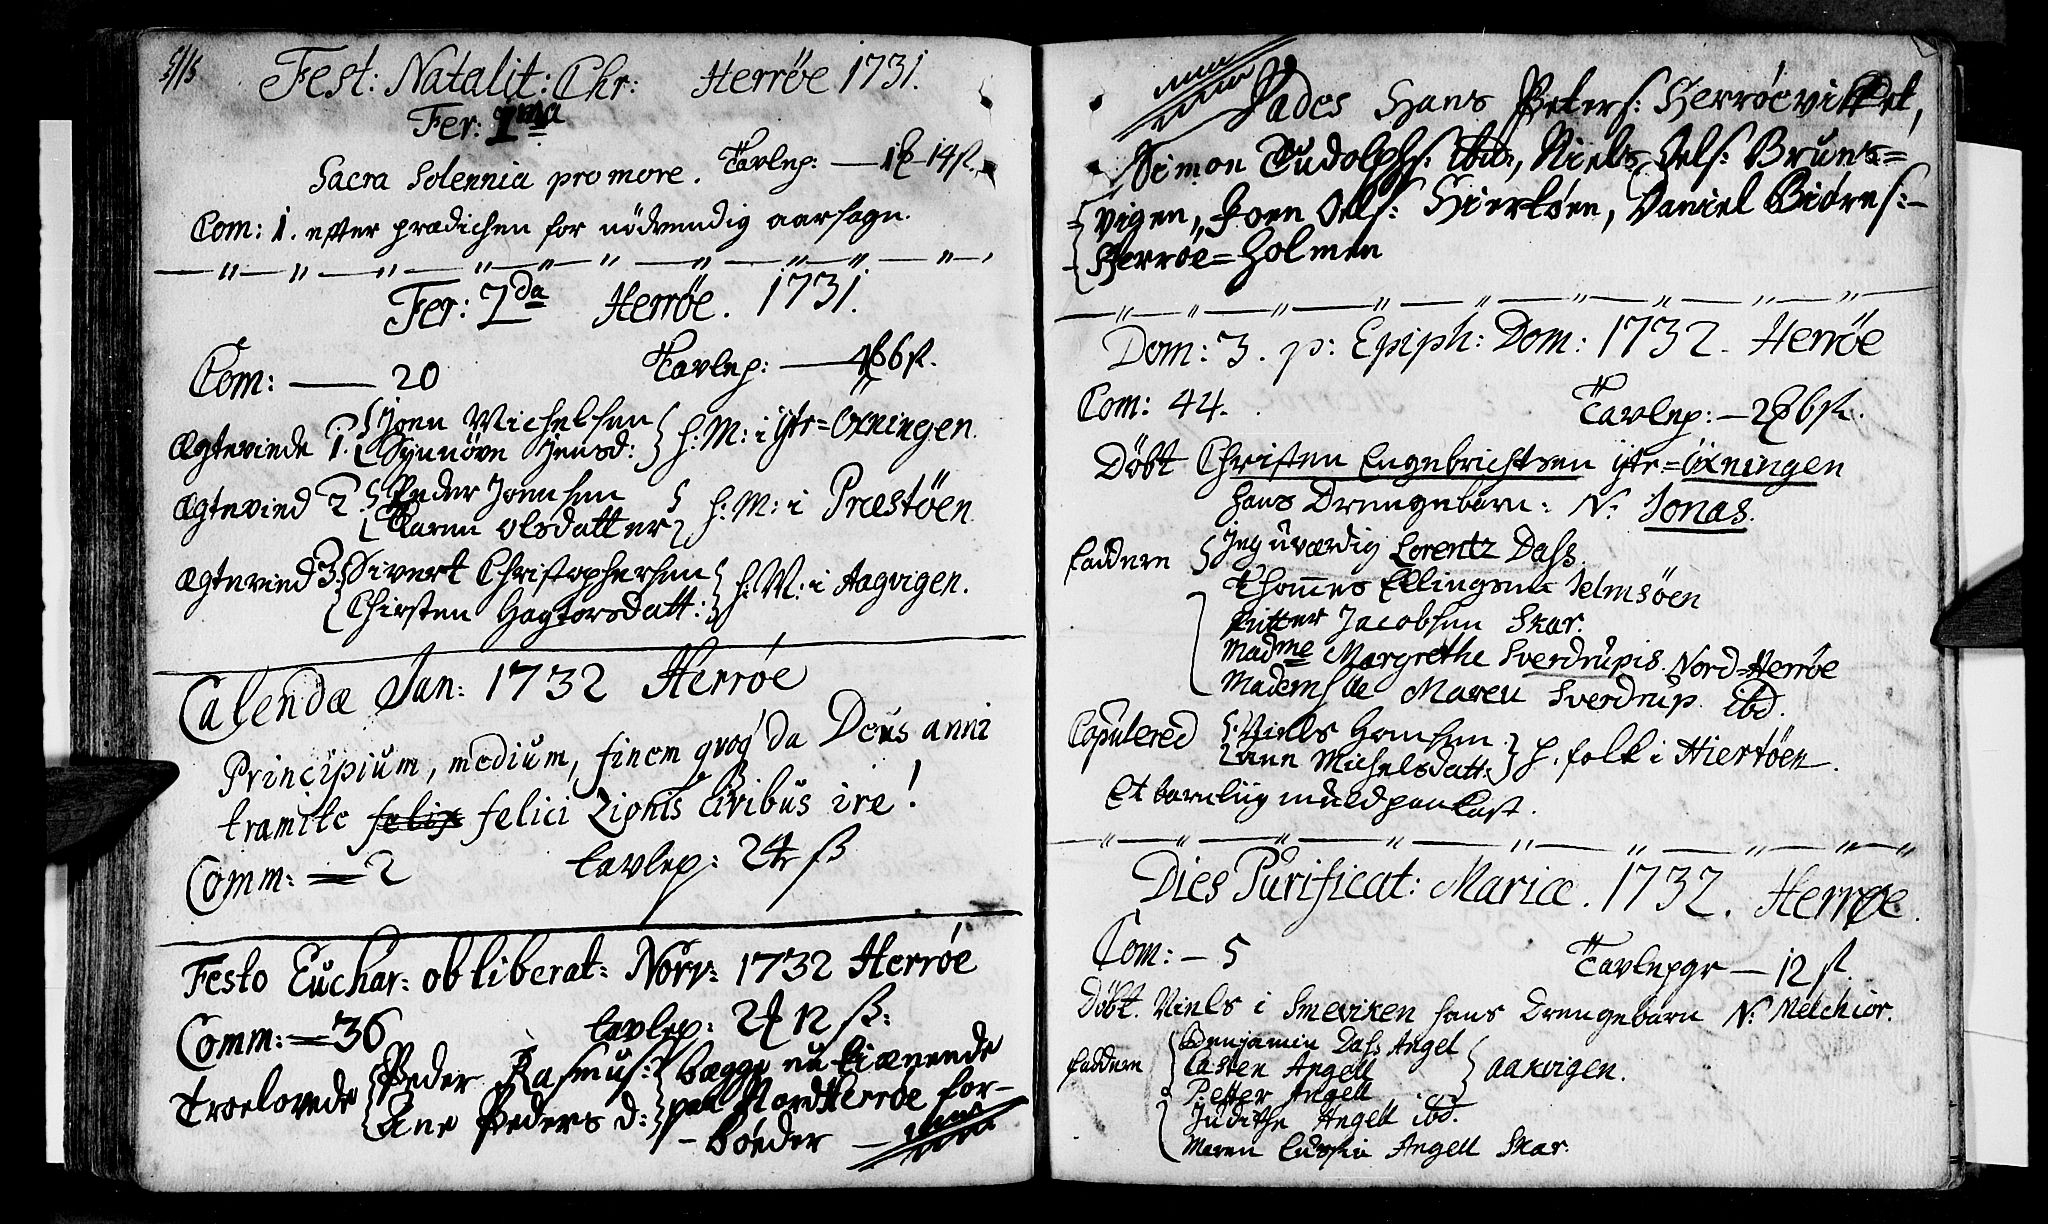 Fest: Natalit: Chr: Herrøe 1731.
Fer: 1ma
Sacra Solennia pro more. Tavlep: — 14 ß.
Com: 1. efter prædichen for nödvendig aarsagn.
Fer: 2da Herröe. 1731.
Com: — 20 Tavlep: — 6 ß.
Ægteviede 1. Joen Michelsen
Synnöve Jensd: h: M: i Ytr=Oxningen.
Ægtevied 2. Peder Joensen
Karen Olsdatter h: M: i Præstöen.
Ægtevied 3. Sivert Christophersen
Chirsten Hagtorsdatt: h: M: i Aagvigen.
Calendæ Jan: 1732 Herröe
Principium, medium, finem qvoq da Deus anni
tramite felix felici Zionis Civibus ire!
Comm: — 2 tavlep: 24 ß
Festo Euchar: ob liberat: Norv: 1732 Herröe
Comm: — 36 tavlep: 2 12 ß:
Troelovede Peder Rasmus: begge nu tienende
Ane Peders d: paa Nord Herröe for-
- böeder —
Fades Hans Peters: Herröevikket,
Simon Tudolphs: ibid:, Niels Oels: Bruns=
vigen, Joen Oels: Hiertöen, Daniel Biörns: -
Herröe=Holmen
Dom: 3. p: Epiph: Dom: 1732. Herröe
Com: 44. Tavlep: — 2 6 ß.
Döbt Christen Engebrichtsen ytr=Öxningen
hans Drengebarn: N: Jonas.
faddere Jeg uværdig Lorentz Dass.
Thomes Ellingsen Selmsöen
Petter Jacobsen Skar.
Madme Margrethe Sverdrupis. Nord=Herröe
Mademslle Maren Sverdrup ibd.
Copulered Niels Hansen
ane Michelsdatt: h. folk i Hiertöen.
Et barnelig muld paa Cast.
Dies Purificat: Mariæ. 1732. Herröe.
Com: — 5 Tavlepgr — 12 ß.
Döbt. Niels i Smeviken hans Drengebarn N: Melchior.
faddere Benjamin Dass Angel
Casten Angell
Petter Angell aakvigen.
Judithe Angell ibd.
Maren Angell Skar.